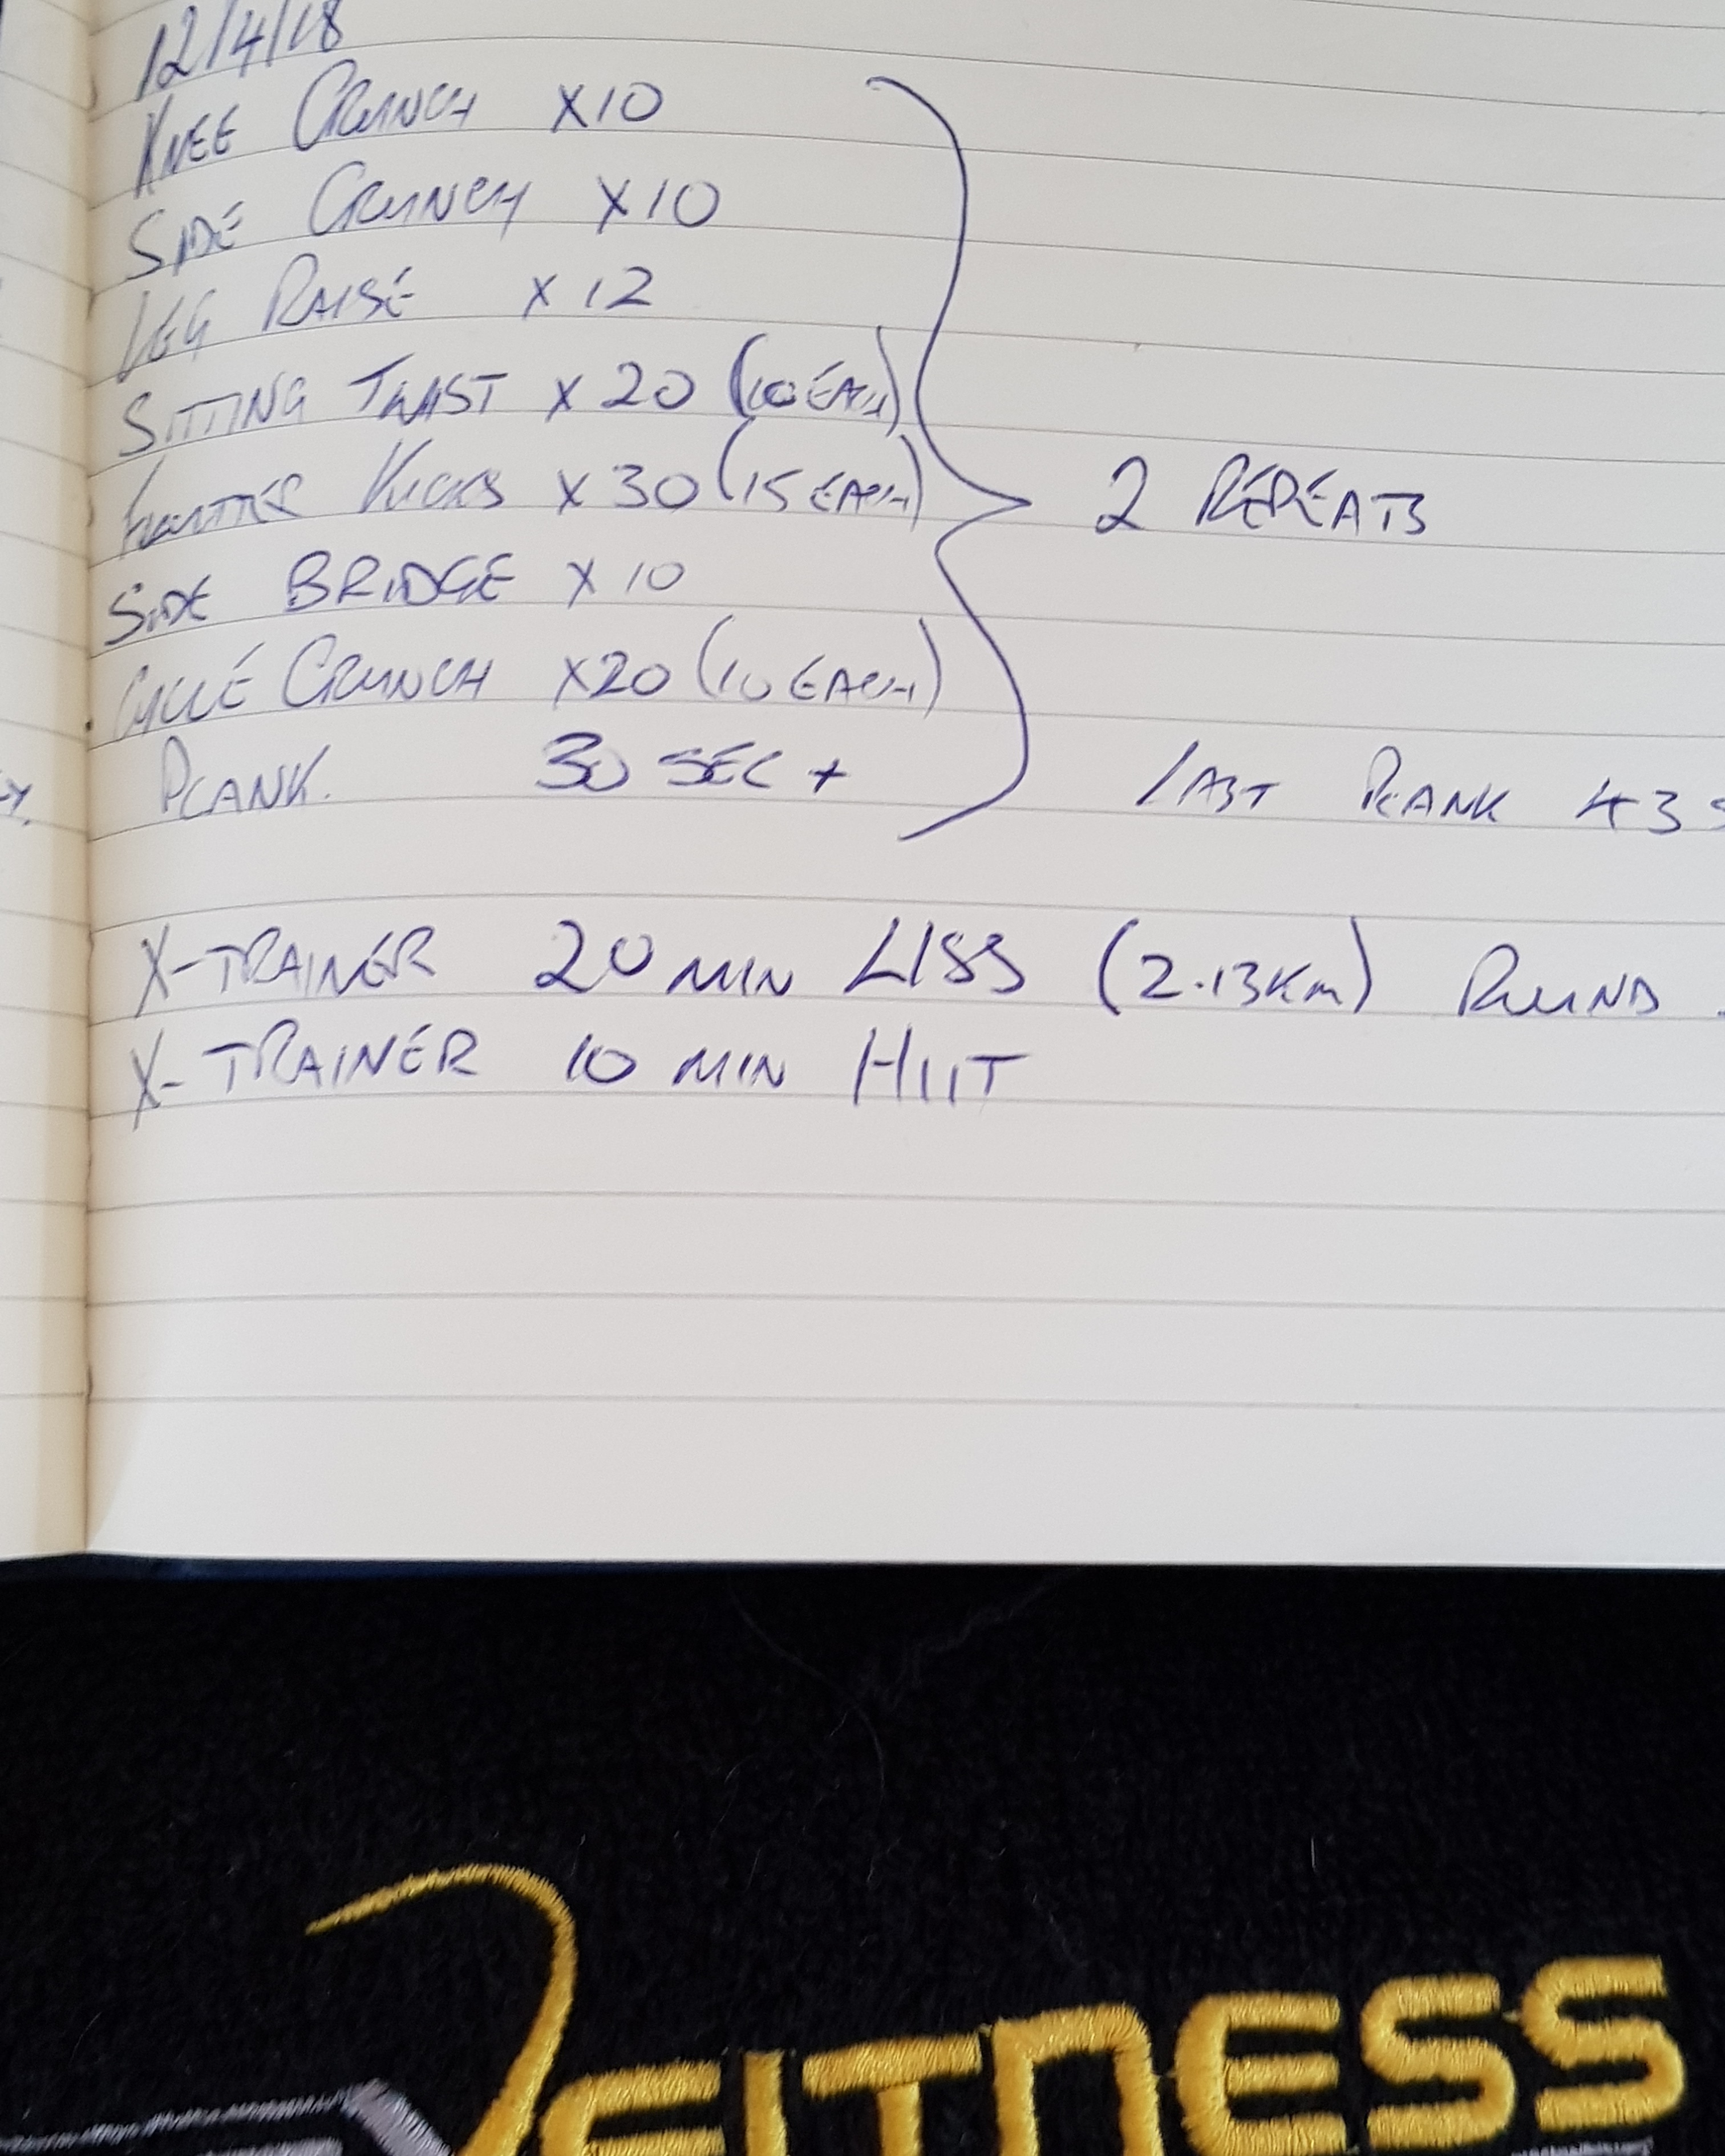 12/4/18
KNEE CRUNCH X10
SIDE CRUNCH X10
LEG RAISE X12
SITTING TWIST X20 (10 EACH)
FLUTTER KICKS X30 (15 EACH)
2 REPEATS
SIDE BRIDGE X10
CYCLE CRUNCH X20 (10 EACH)
PLANK. 30 SEC +
LAST PLANK 43S
X-TRAINER 20 MIN LISS (2.13KM)
X-TRAINER 10 MIN HIIT
FITNESS